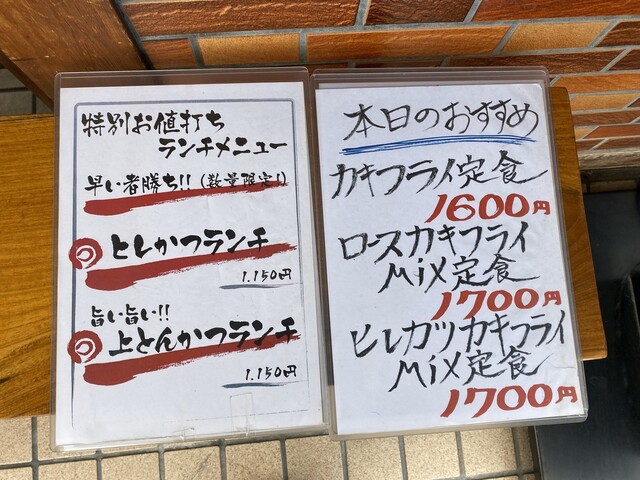 特別お値打ち
ランチメニュー
早い者勝ち!!(数量限定!)
ヒレかつランチ
1.150円
旨い旨い!!
上とんかつランチ
1.150円
本日のおすすめ
カキフライ定食
1600円
ロースカキフライ
Mix定食
1700円
ヒレカツカキフライ
Mix定食
1700円